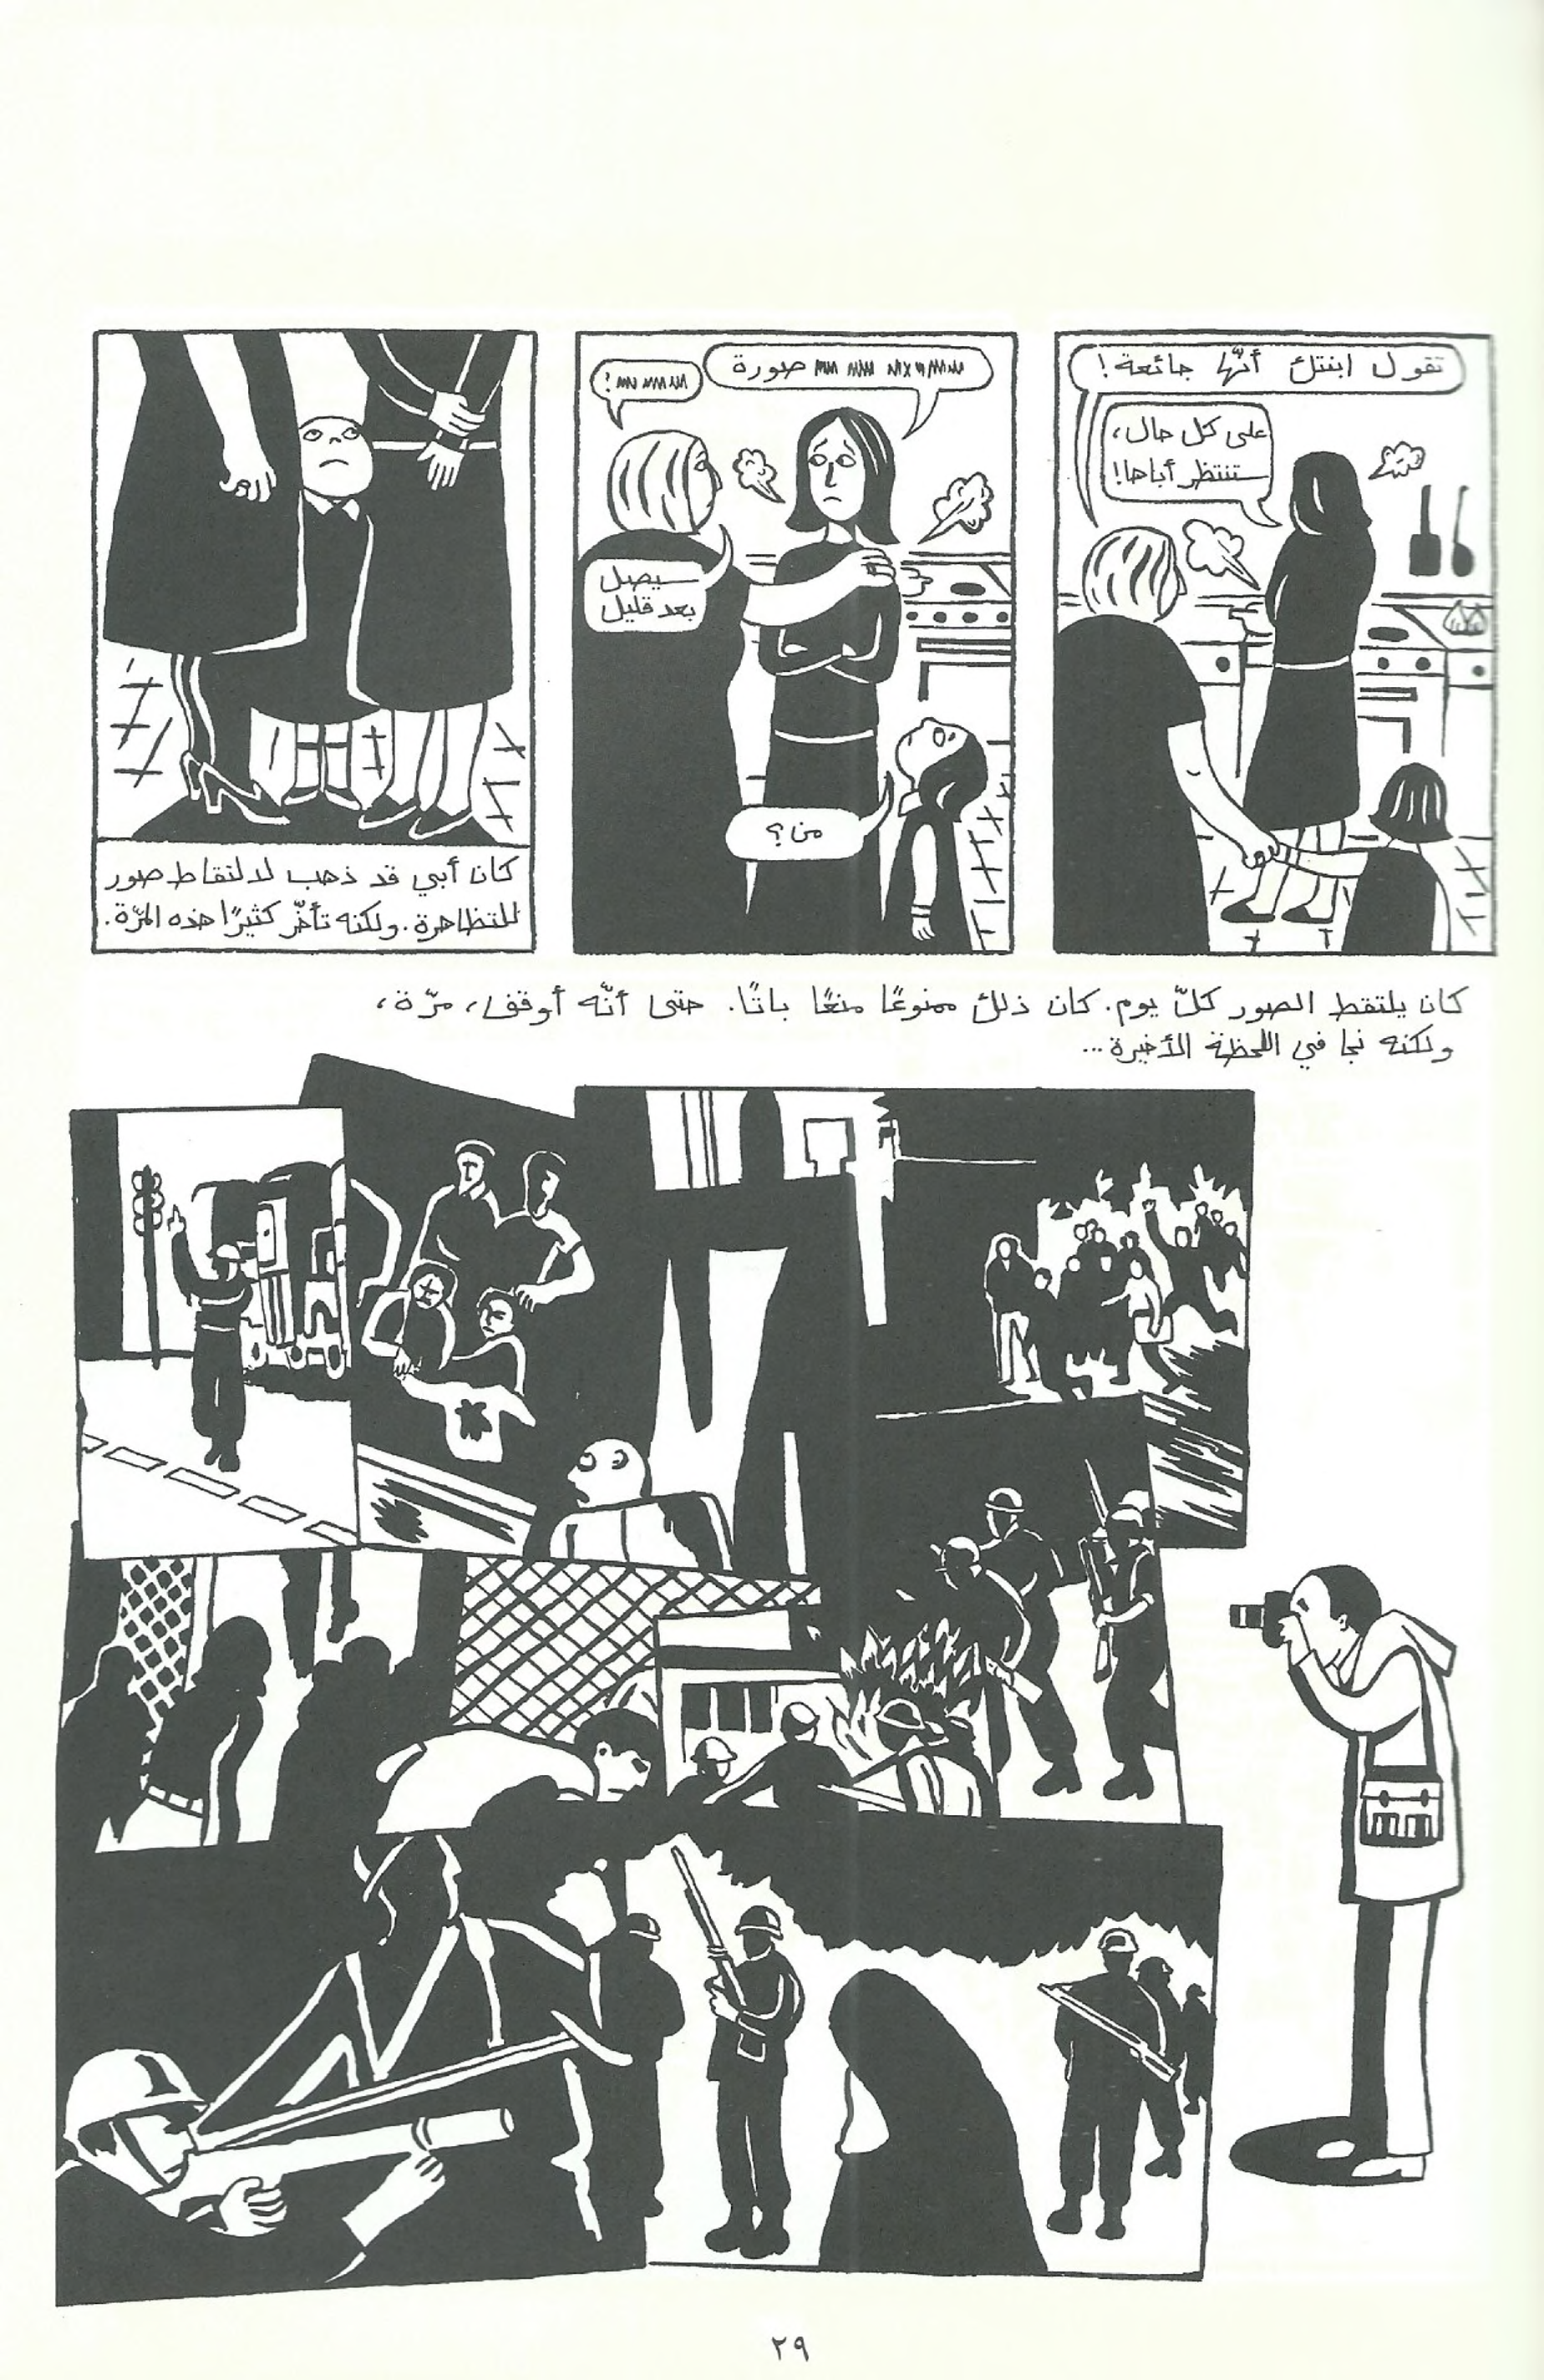 تقول ابنتك أنّها جائعة!
على كل حال،
ستنتظر أباها!
صورة
سيصل
بعد قليل
من؟
كان أبي قد ذهب لالتقاط صور
للتظاهرة. ولكنه تأخّر كثيرًا هذه المرّة.
كان يلتقط الصور كلّ يوم. كان ذلك ممنوعًا منعًا باتًا. حتى أنّه أوقف، مرّة،
ولكنه نجا في اللحظة الأخيرة...
٢٩